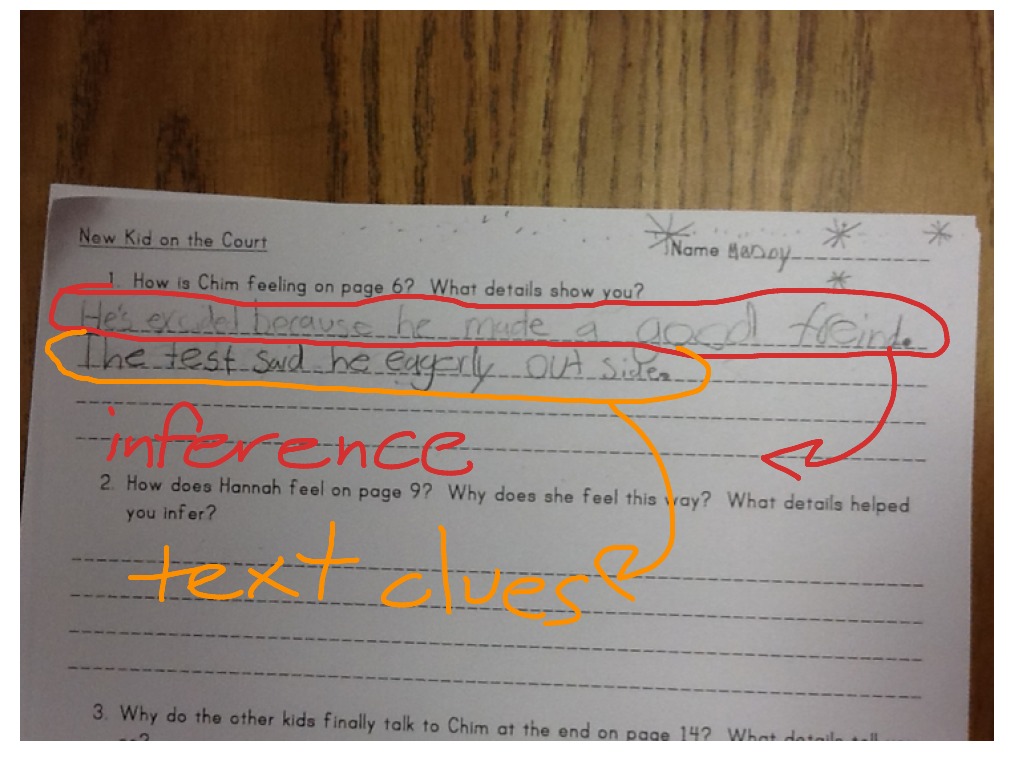 New Kid on the Court
Name Mandy
1. How is Chim feeling on page 6? What details show you?
He's excidel because he made a good freind.
The test said he eagerly out side.
inference
2. How does Hannah feel on page 9? Why does she feel this way? What details helped
you infer?
text clues
3. Why do the other kids finally talk to Chim at the end on page 14? What details tell